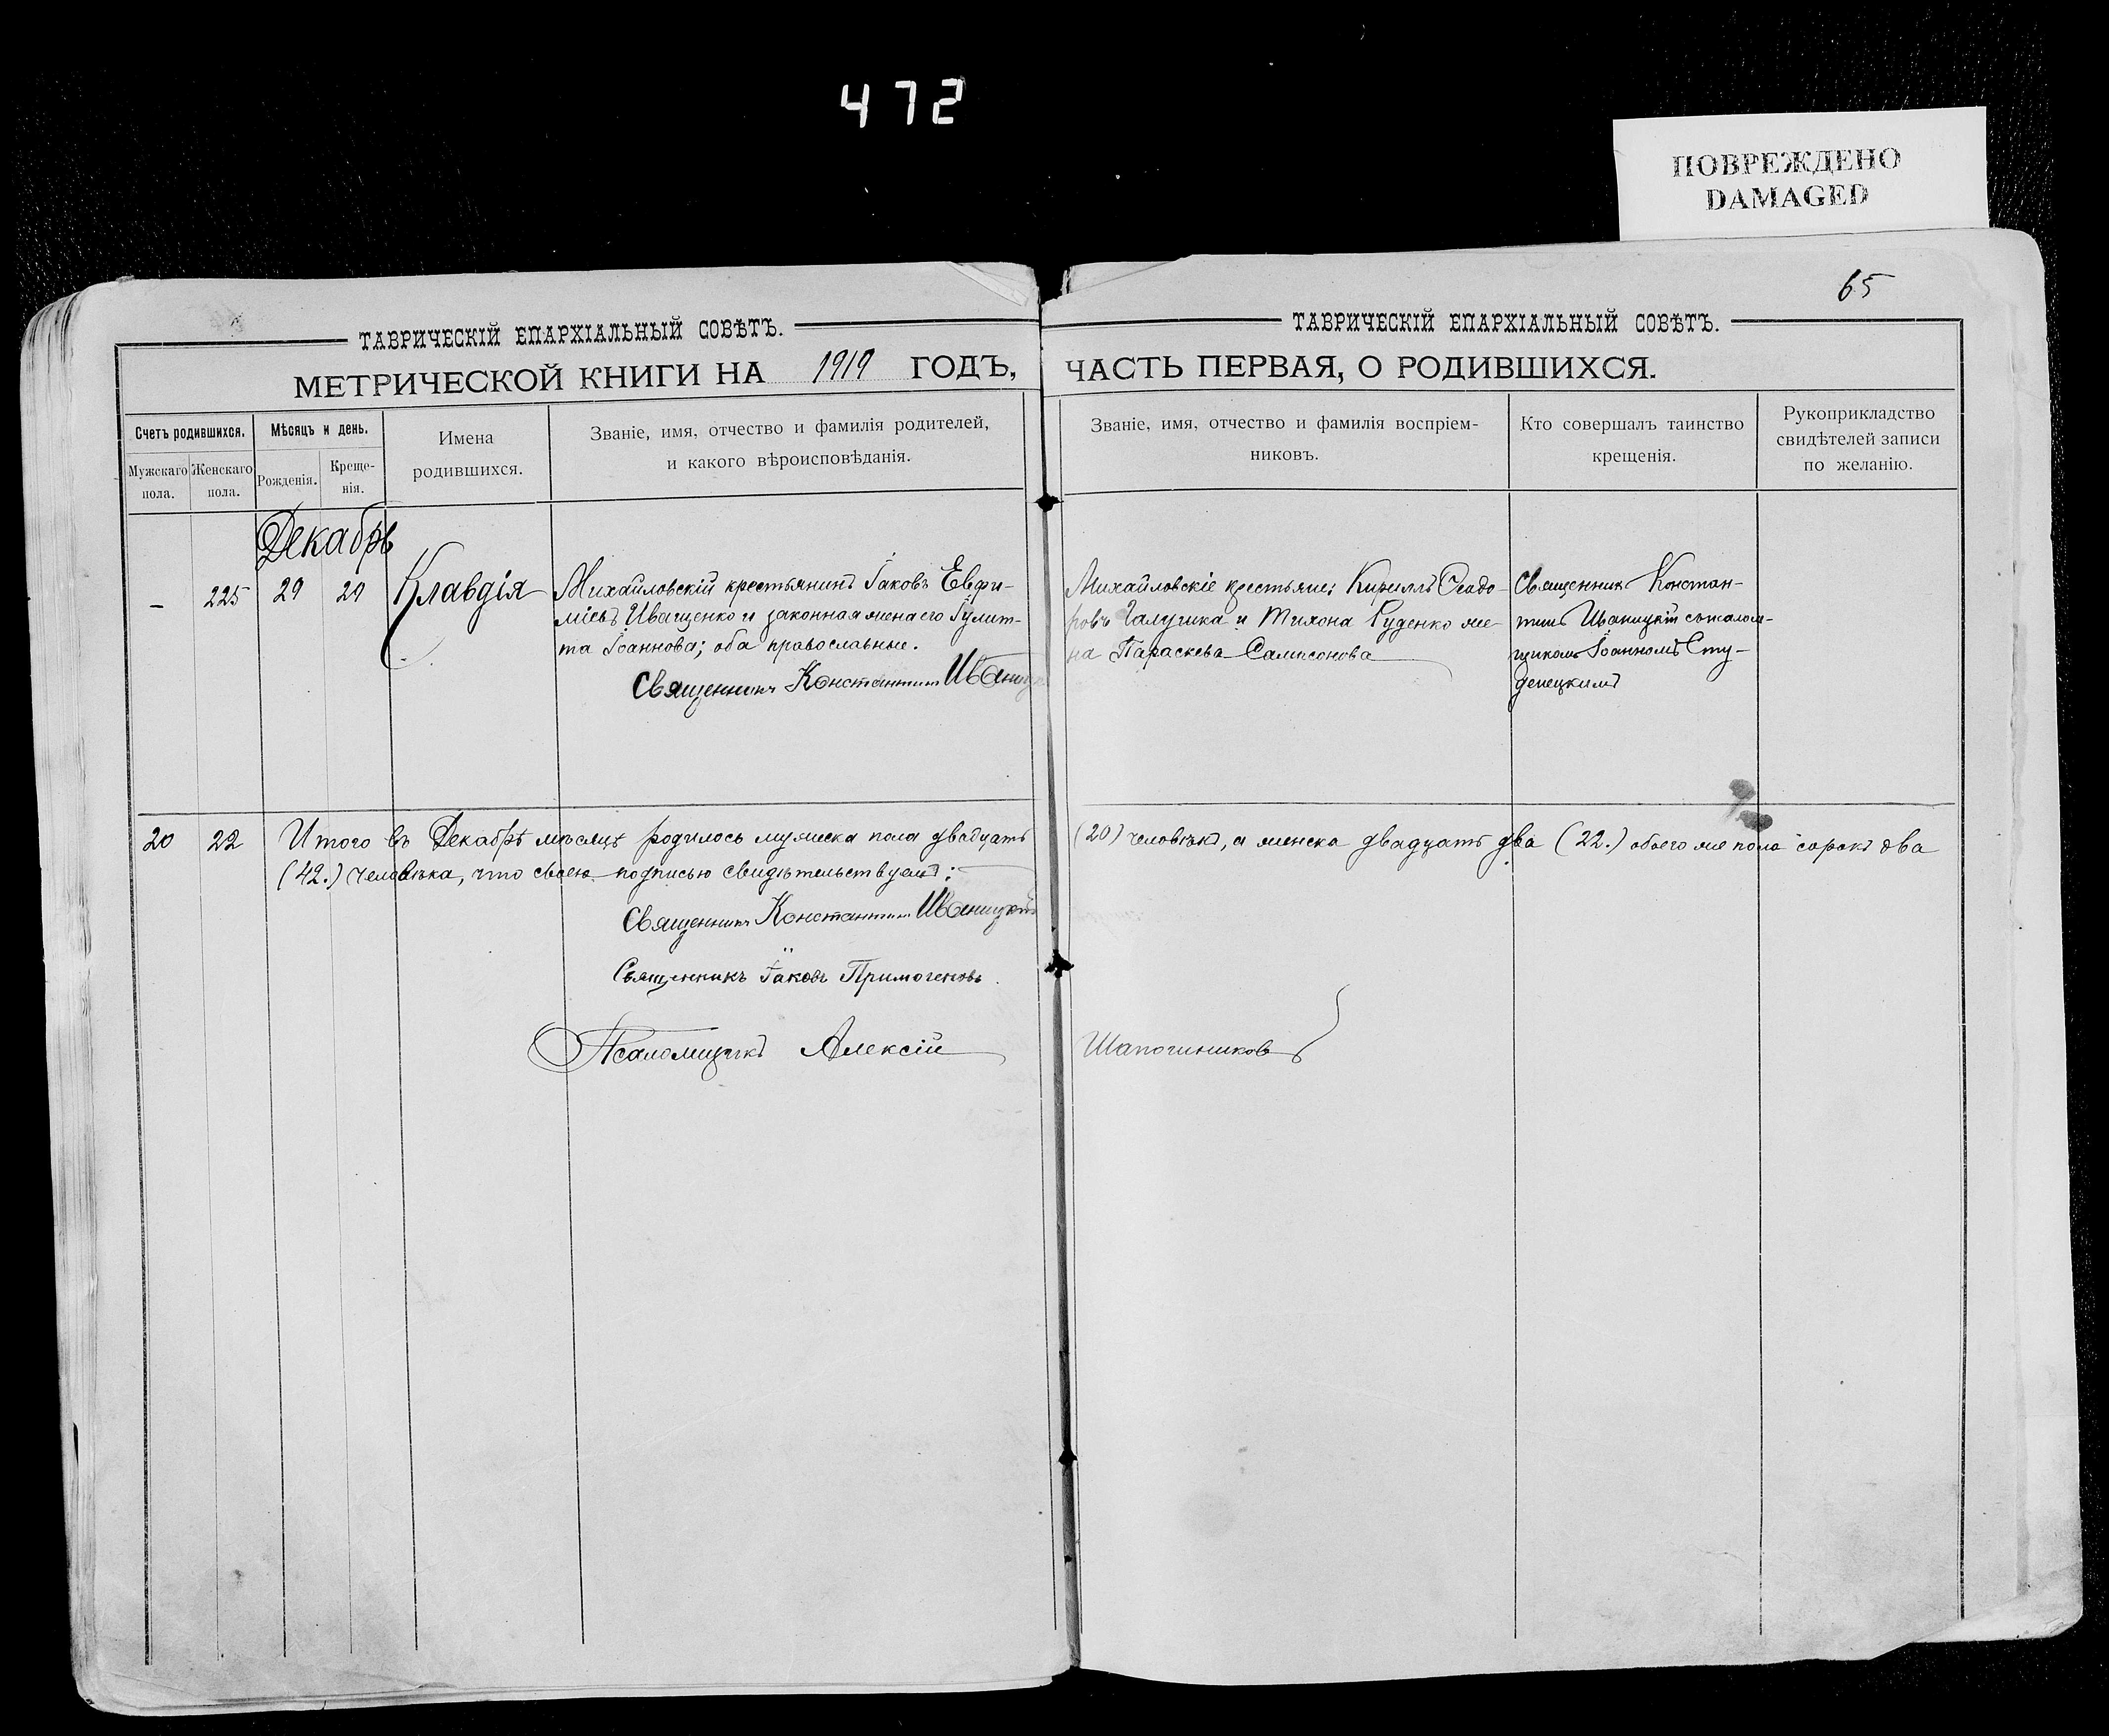 472
ПОВРЕЖДЕНО
DAMAGED
65
ТАВРИЧЕСКІЙ ЕПАРХІАЛЬНЫЙ СОВѢТЪ.
МЕТРИЧЕСКОЙ КНИГИ НА 1919 ГОДЪ,
Счетъ родившихся.
Мужскаго пола.
Женскаго пола.
Мѣсяцъ и день.
Рожденія.
Креще-
нія.
Имена
родившихся.
Званіе, имя, отчество и фамилія родителей,
и какого вѣроисповѣданія.
Декабрь
– 225 29 29 Клавдія
Михайловскій крестьянинъ Іаковъ Евфи-
міевъ Иващенко и законная жена его Іулит-
та Іоаннова; оба православные.
Священникъ Константинъ Иваниц
20 22 Итого въ Декабрѣ мѣсяцѣ родилось мужеска пола двадцать
(42.) человѣка, что своею подписью свидѣтельствуемъ:
Священникъ Константинъ Иваницкій
Священникъ Іаковъ Примогеновъ.
Псаломщикъ Алексій
ТАВРИЧЕСКІЙ ЕПАРХІАЛЬНЫЙ СОВѢТЪ.
ЧАСТЬ ПЕРВАЯ, О РОДИВШИХСЯ.
Званіе, имя, отчество и фамилія воспріем-
никовъ.
Кто совершалъ таинство
крещенія.
Рукоприкладство
свидѣтелей записи
по желанію.
Михайловскіе крестьяне: Кириллъ Ѳеодо-
ровъ Галушка и Тихона Руденко же-
на Параскева Сампсонова
Священникъ Констан-
тинъ Иваницкій съ псалом-
щикомъ Іоанномъ Сту-
денецкимъ
(20) человѣкъ, а женска двадцать два (22.) обоего же пола сорокъ два
Шапошниковъ